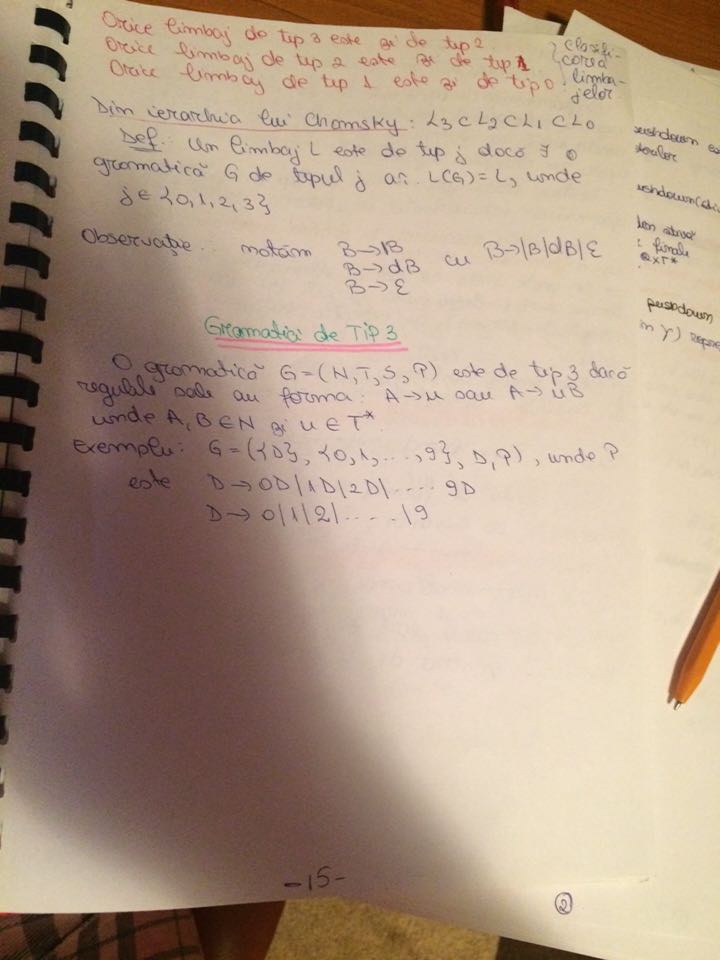 Orice limbaj de tip 3 este și de tip 2.
Orice limbaj de tip 2 este și de tip 1
Orice limbaj de tip 1 este și de tip 0
clasifi-
carea
limba-
jelor
Din ierarhia lui Chomsky: L3 ⊂ L2 ⊂ L1 ⊂ L0
Def.: Un limbaj L este de tip j dacă ∃ o
gramatică G de tipul j a.î. L(G) = L, unde
j ∈ {0,1,2,3}
Observație: notăm B→lB cu B→lB|dB|ε
B→dB
B→ε
Gramatici de TIP 3
O gramatică G=(N,T,S,P) este de tip 3 dacă
regulile sale au forma: A→u sau A→uB
unde A,B∈N și u∈T*.
Exemplu: G=({D}, {0,1,...,9}, D,P), unde P
este D→0D|1D|2D|.....9D
D→0|1|2|.....|9
-15-
2
final
finale
QxT*
pushdown